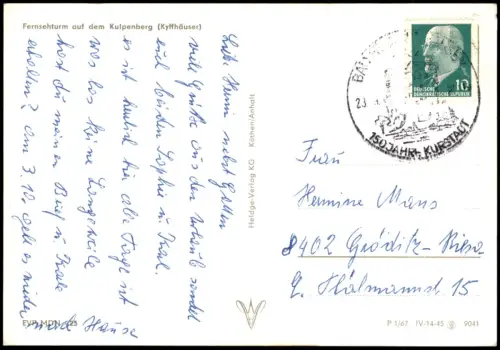 Fernsehturm auf dem Kulpenberg (Kyffhäuser)
Liebe Hermi nebst Gatten
viele Grüße aus dem Urlaub sendet
euch beiden Sophie u. Karl.
es ist herrlich hier alle Tage ist
was los keine Langeweile
hast du meinen Brief u. Karte
erhalten? am 3.10. geht es wieder
nach Hause
EVP MDN
Heldge-Verlag KG Köthen/Anhalt
DEUTSCHE
DEMOKRATISCHE REPUBLIK
10
BAD
23
150 JAHRE KURSTADT
Frau
Hermine Mans
8402 Gröditz-Riesa
E. Thälmannstr 15
P 1/67 IV-14-45 9041